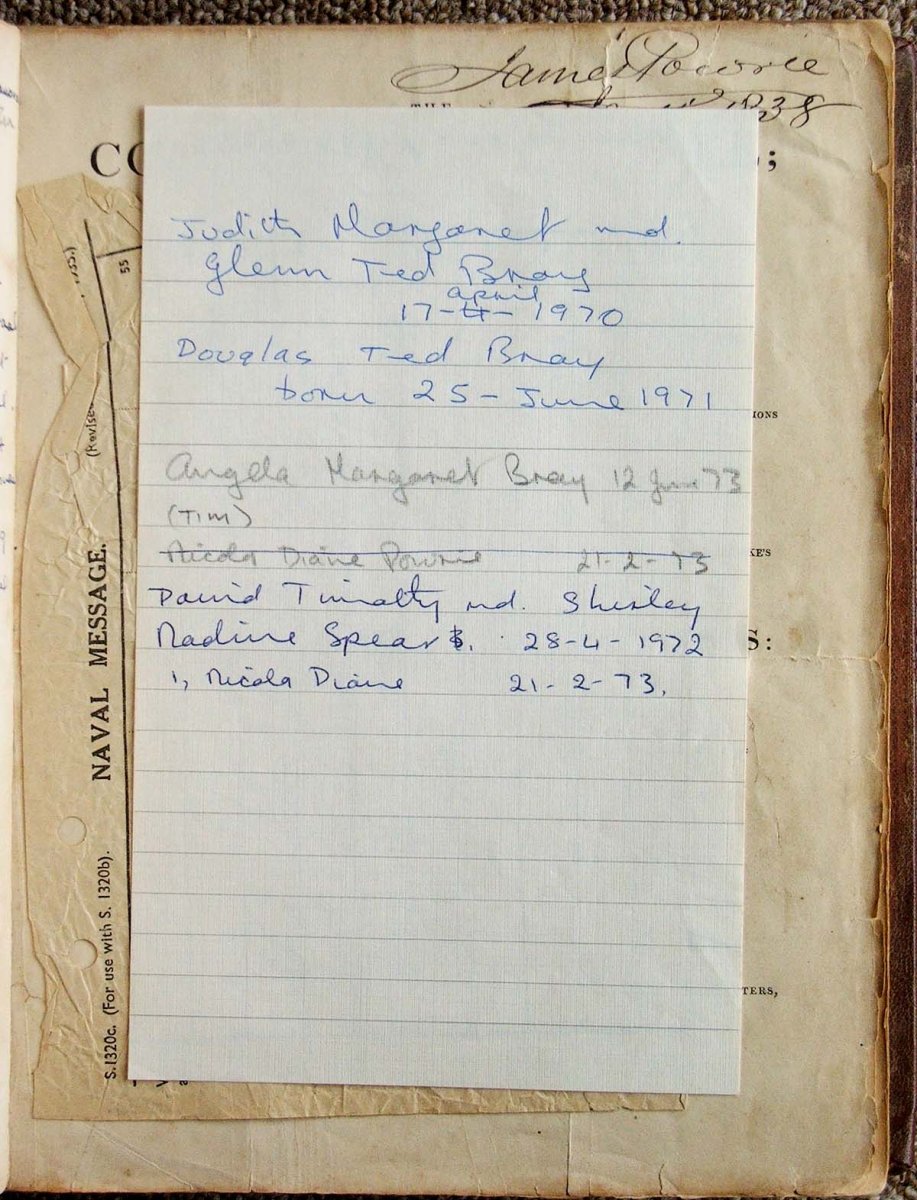 James Powrie
1838
THE
CO
;
Judith Margaret md.
Glenn Ted Bray
april
17-4-1970
Douglas Ted Bray
born 25-June 1971
Angela Margaret Bray 12 June 73
(TIM)
Nicola Diane Powrie 21-2-73
David Timothy md. Shirley
Nadine Spears. 28-4-1972
1, Nicola Diane 21-2-73.
IONS
KE'S
S:
TERS,
55
(Revised
NAVAL MESSAGE.
S.1320c. (For use with S. 1320b).